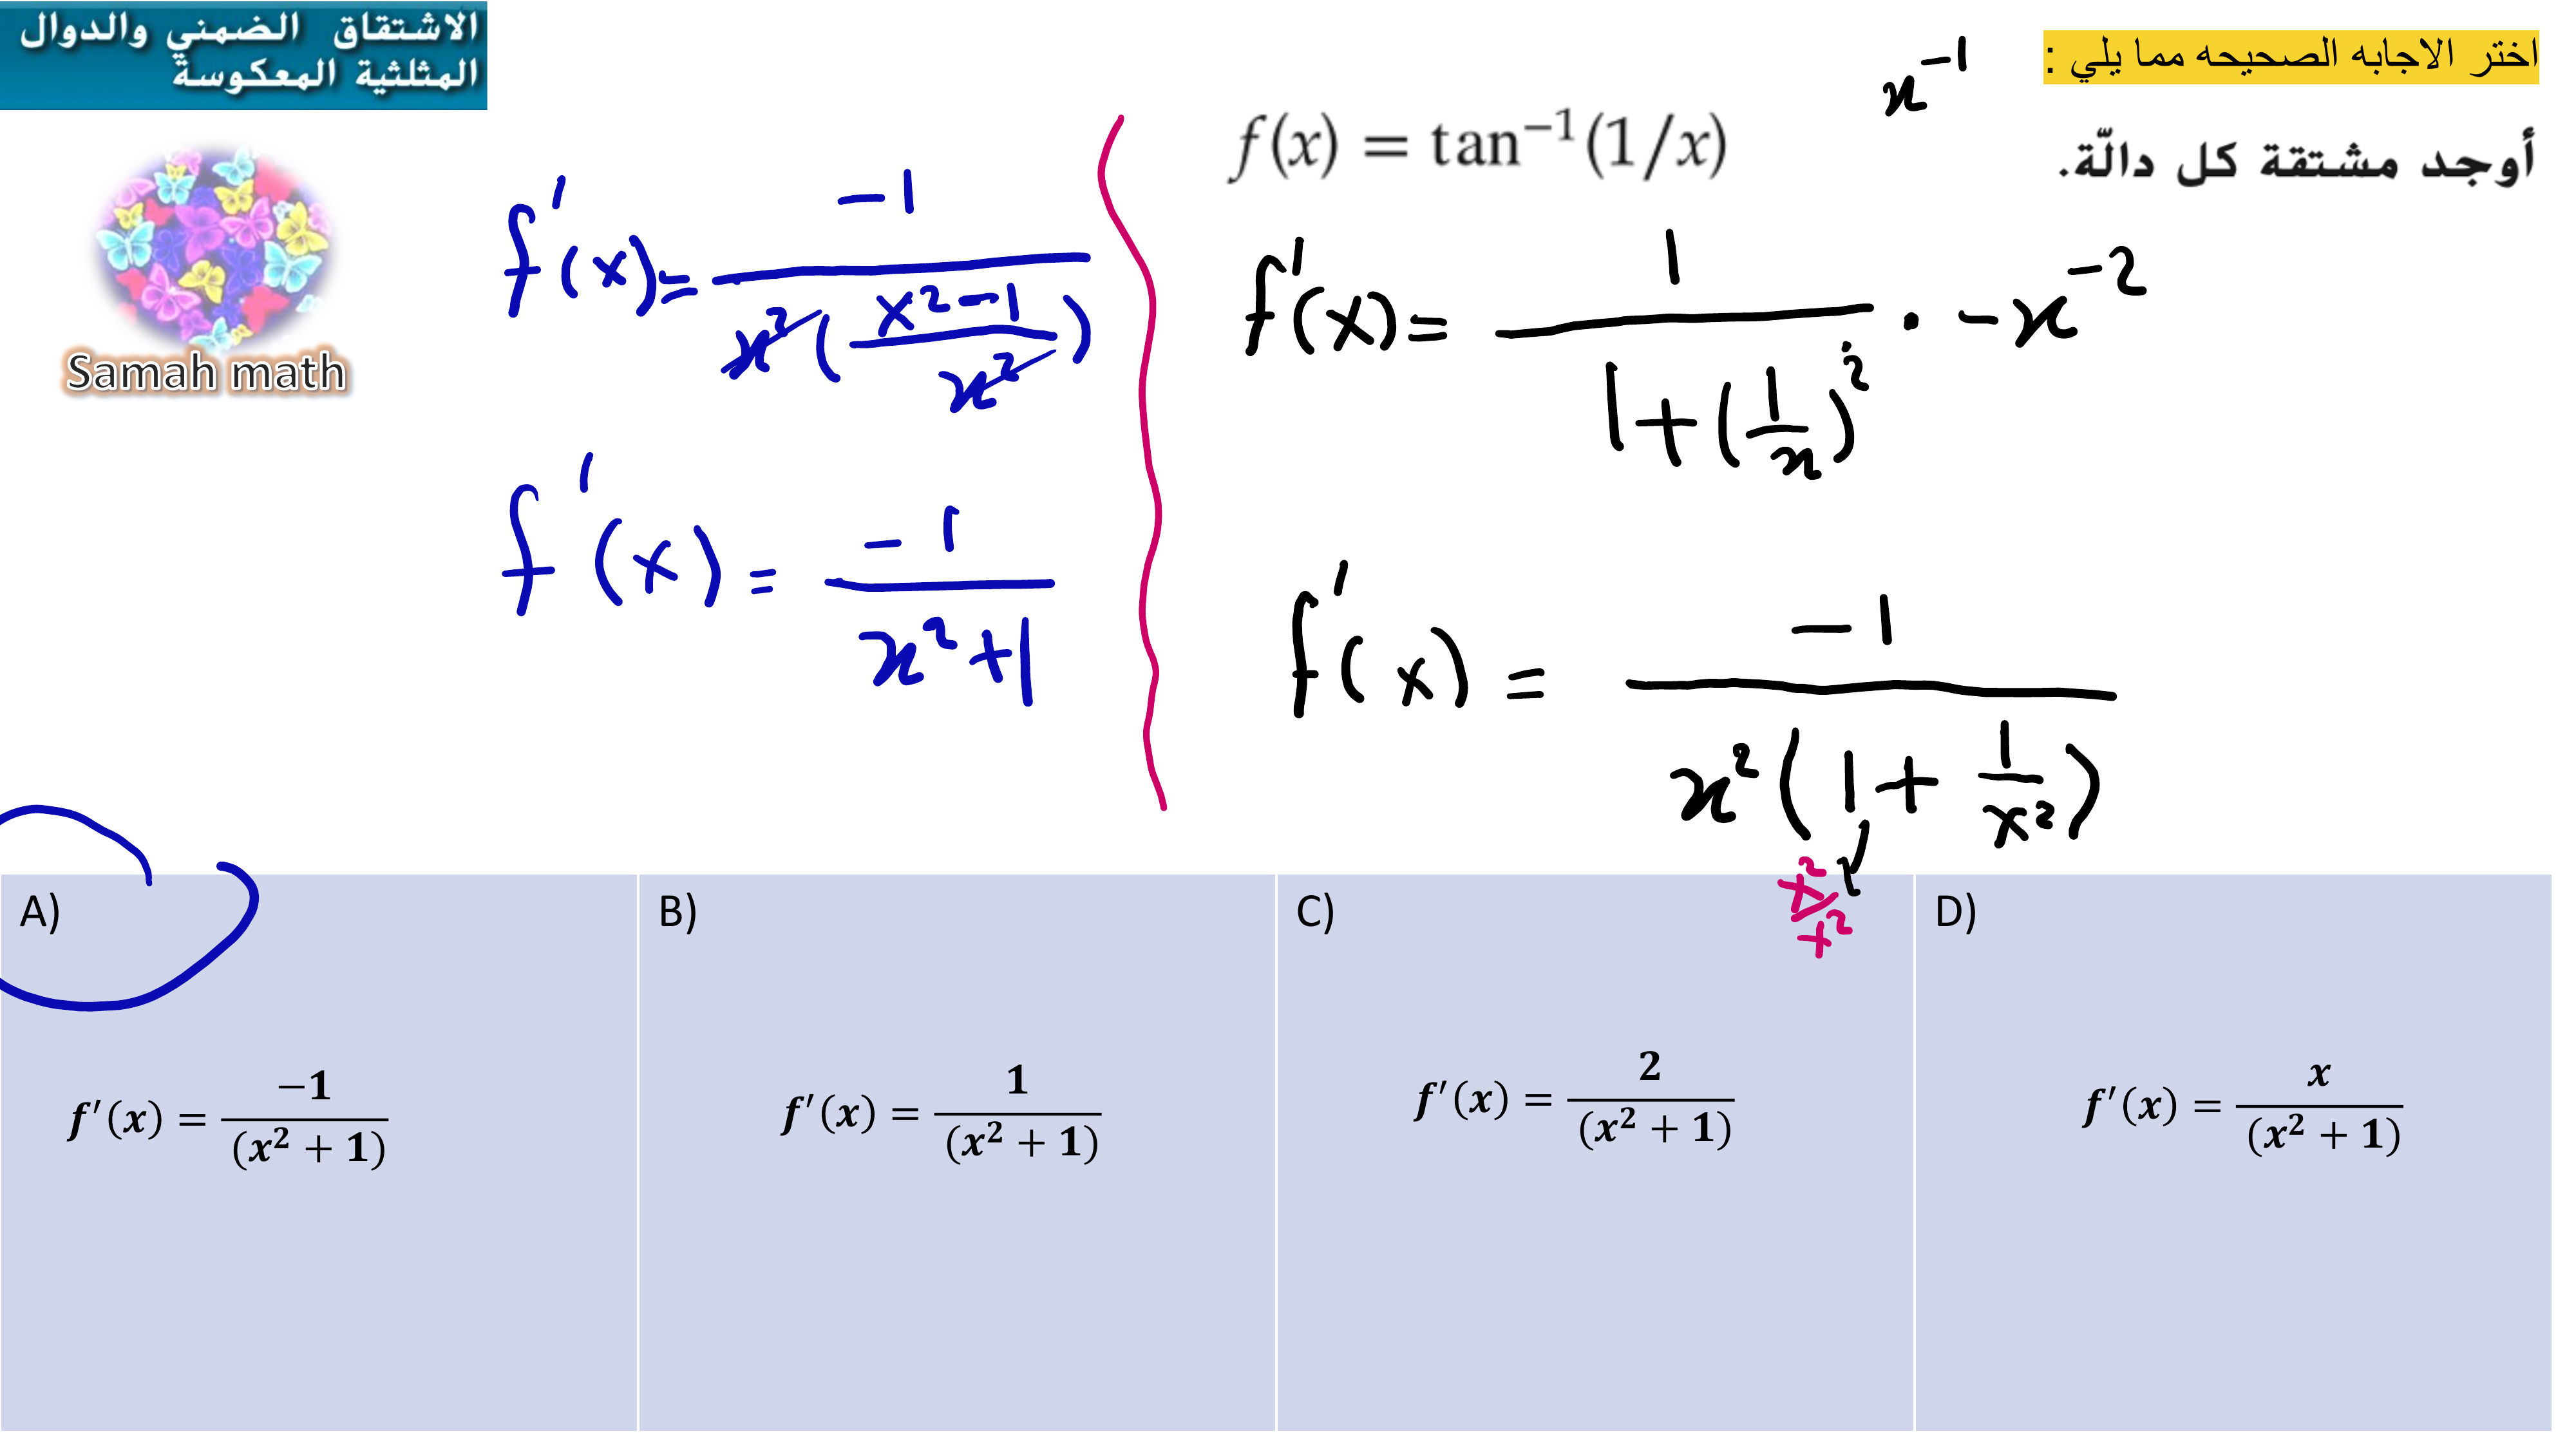 الاشتقاق الضمني والدوال
المثلثية المعكوسة
Samah math
اختر الاجابه الصحيحه مما يلي :
أوجد مشتقة كل دالّة.
f(x) = tan⁻¹(1/x)
x⁻¹
f'(x) = 1 / (1 + (1/x)²) · -x⁻²
f'(x) = -1 / (x²(1 + 1/x²))
x²/x²
f'(x) = -1 / (x²((x²-1)/x²))
f'(x) = -1 / (x²+1)
A)
f′(x) = −1 / (x² + 1)
B)
f′(x) = 1 / (x² + 1)
C)
f′(x) = 2 / (x² + 1)
D)
f′(x) = x / (x² + 1)